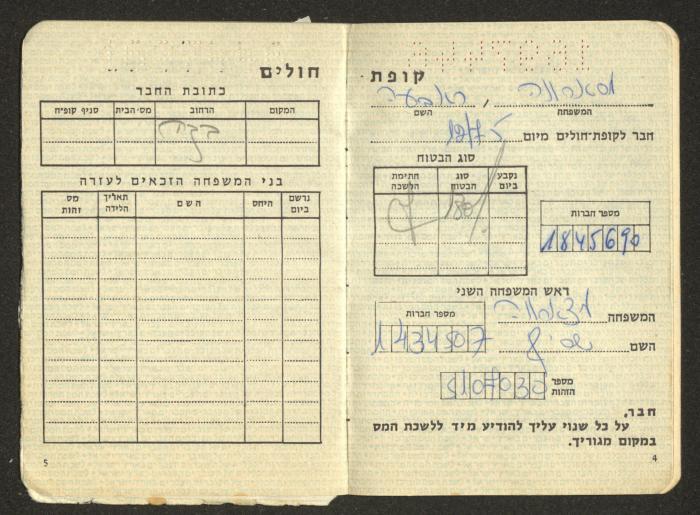 קופת
ראבעה
המשפחה
השם
חבר לקופת-חולים מיום
סוג הבטוח
נקבע ביום
סוג הבטוח
חתימת הלשכה
מספר חברות
1845690
ראש המשפחה השני
מספר חברות
1434507
המשפחה
השם
מספר הזהות
5107030
חבר,
על כל שנוי עליך להודיע מיד ללשכת המס
במקום מגוריך.
4
חולים
כתובת החבר
המקום
הרחוב
מס׳ הבית
סניף קופ״ח
בני המשפחה הזכאים לעזרה
נרשם ביום
היחס
השם
תאריך הלידה
מס זהות
5